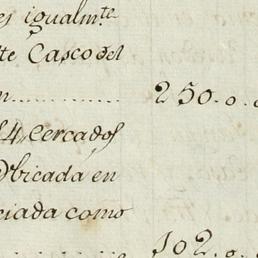 es igualm.te
te Casco del
n.......... 250. o.
4 cercados
Vbicada en
ciada como
.......... 102. o.